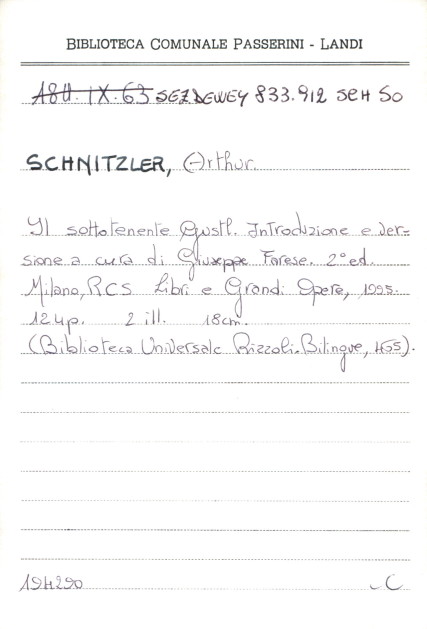 BIBLIOTECA COMUNALE PASSERINI - LANDI
A8U. IX. 63 SEZ DEWEY 833.912 SCH SO
SCHNITZLER, Arthur.
Il sottotenente Gustl. Introduzione e ver=
sione a cura di Giuseppe Farese. 2° ed.
Milano, RCS Libri e Grandi Opere, 1995.
124p. 2 ill. 18cm.
(Biblioteca Universale Rizzoli. Bilingue, 455).
194290
C